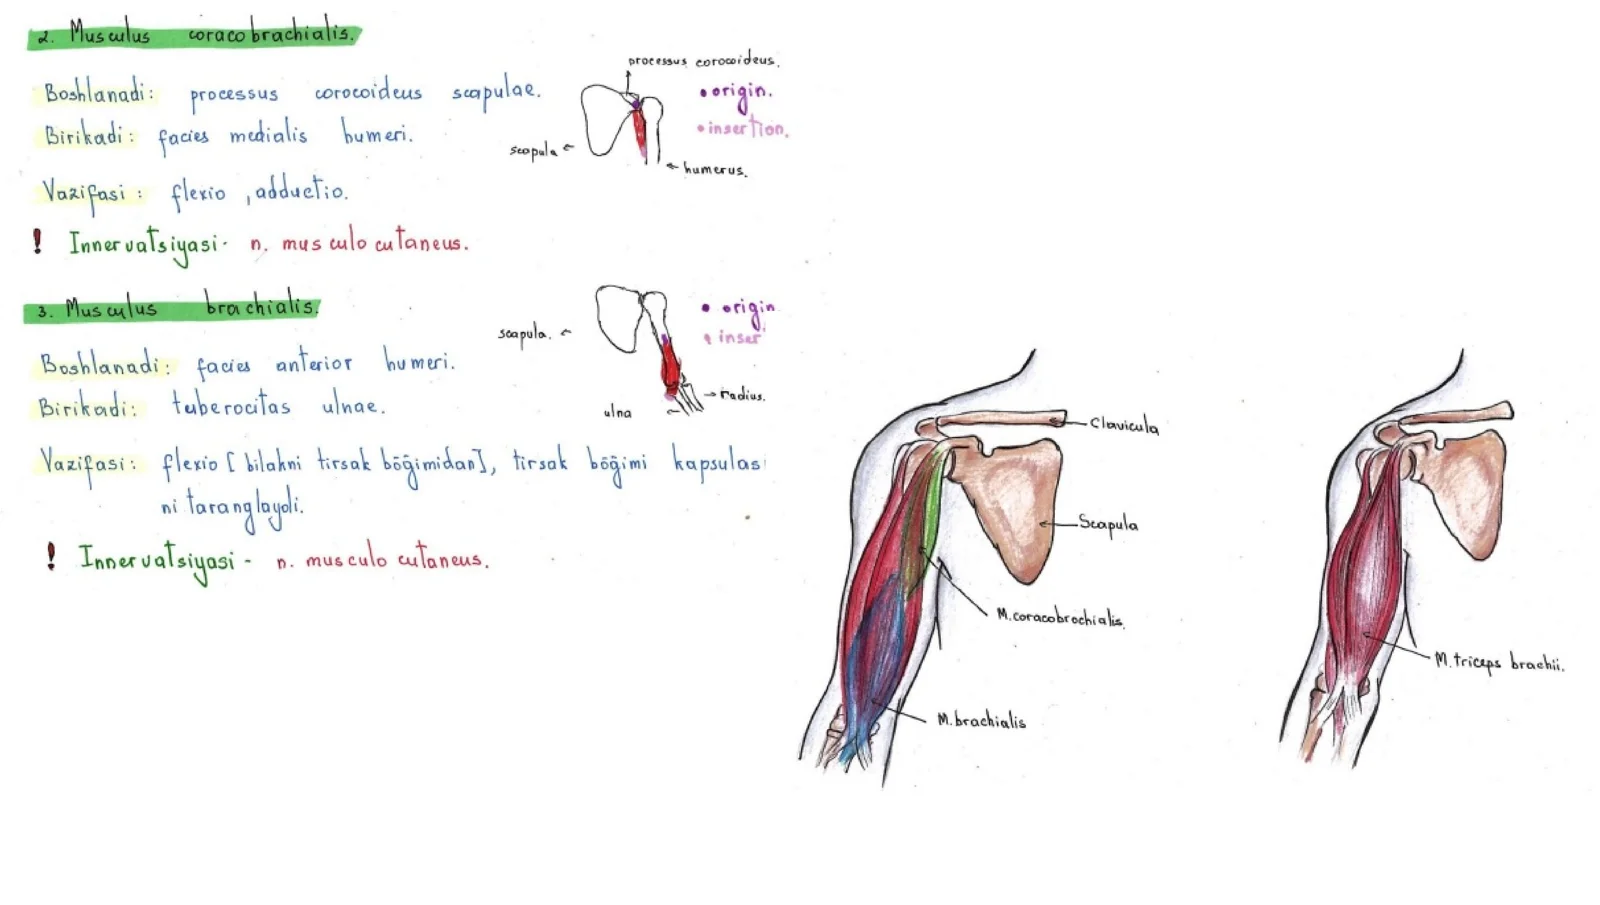 2. Musculus coracobrachialis.
Boshlanadi: processus corocoideus scapulae.
Birikadi: facies medialis humeri.
Vazifasi: flexio, adductio.
! Innervatsiyasi- n. musculocutaneus.
processus corocoideus.
• origin.
• insertion.
scapula
humerus.
3. Musculus brachialis.
Boshlanadi: facies anterior humeri.
Birikadi: tuberocitas ulnae.
Vazifasi: flexio [bilakni tirsak bōğimidan], tirsak bōğimi kapsulasi
ni taranglaydi.
! Innervatsiyasi - n. musculocutaneus.
scapula.
• origin
• inser
radius.
ulna
Clavicula
Scapula
M.coracobrochialis.
M.brachialis
M.triceps brachii.